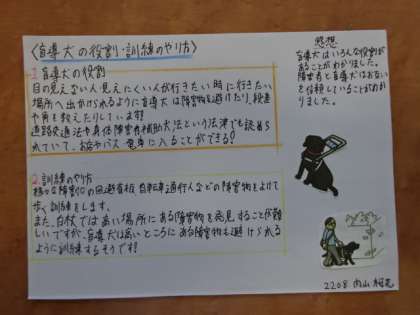 〈盲導犬の役割・訓練のやり方〉
1 盲導犬の役割
目の見えない人見えにくい人が行きたい時に行きたい
場所へ出かけられるように盲導犬は障害物を避けたり、段差
や角を教えたりしています!
道路交通法や身体障害者補助犬法という法律でも認め
られていて、お店やバス電車に入ることができる!
2 訓練のやり方
様々な障害物の回避看板、自転車通行人などの障害物をよけて
歩く訓練をします。
また、白杖では高い場所にある障害物を発見することが難
しいですが、盲導犬は高いところにある障害物も避けられる
ように訓練するそうです!
感想
盲導犬はいろんな役割が
あることがわかりました。
障害者と盲導犬はお互い
を信頼していることがわか
りました。
2208 内山